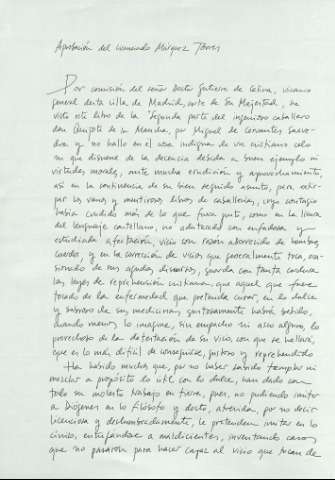 Aprobación del licenciado Márquez Torres
Por comisión del señor Doctor Gutierre de Cetina, vicario
general desta villa de Madrid, corte de Su Majestad, he
visto este libro de la Segunda parte del ingenioso caballero
don Quijote de la Mancha, por Miguel de Cervantes Saave-
dra, y no hallo en él cosa indigna de un cristiano celo
ni que disuene de la decencia debida a buen ejemplo, ni
virtudes morales, antes mucha erudición y aprovechamiento,
así en la continencia de su bien seguido asunto, para extir-
par los vanos y mentirosos libros de caballerías, cuyo contagio
había cundido más de lo que fuera justo, como en la lisura
del lenguaje castellano, no adulterado con enfadosa y
estudiada afectación, vicio con razón aborrecido de hombres
cuerdos; y en la corrección de vicios que generalmente toca, oca-
sionado de sus agudos discursos, guarda con tanta cordura
las leyes de reprehensión cristiana, que aquel que fuere
tocado de la enfermedad que pretende curar, en lo dulce
y sabroso de sus medicinas gustosamente habrá bebido,
cuando menos lo imagine, sin empacho ni asco alguno, lo
provechoso de la detestación de su vicio, con que se hallará,
que es lo más difícil de conseguirse, gustoso y reprehendido.
Ha habido muchos que, por no haber sabido templar ni
mezclar a propósito lo útil con lo dulce, han dado con
todo su molesto trabajo en tierra, pues, no pudiendo imitar
a Diógenes en lo filósofo y docto, atrevida, por no decir
licenciosa y deslumbradamente, le pretenden imitar en lo
cínico, entregándose a maldicientes, inventando casos
que no pasaron para hacer capaz al vicio que tocan de